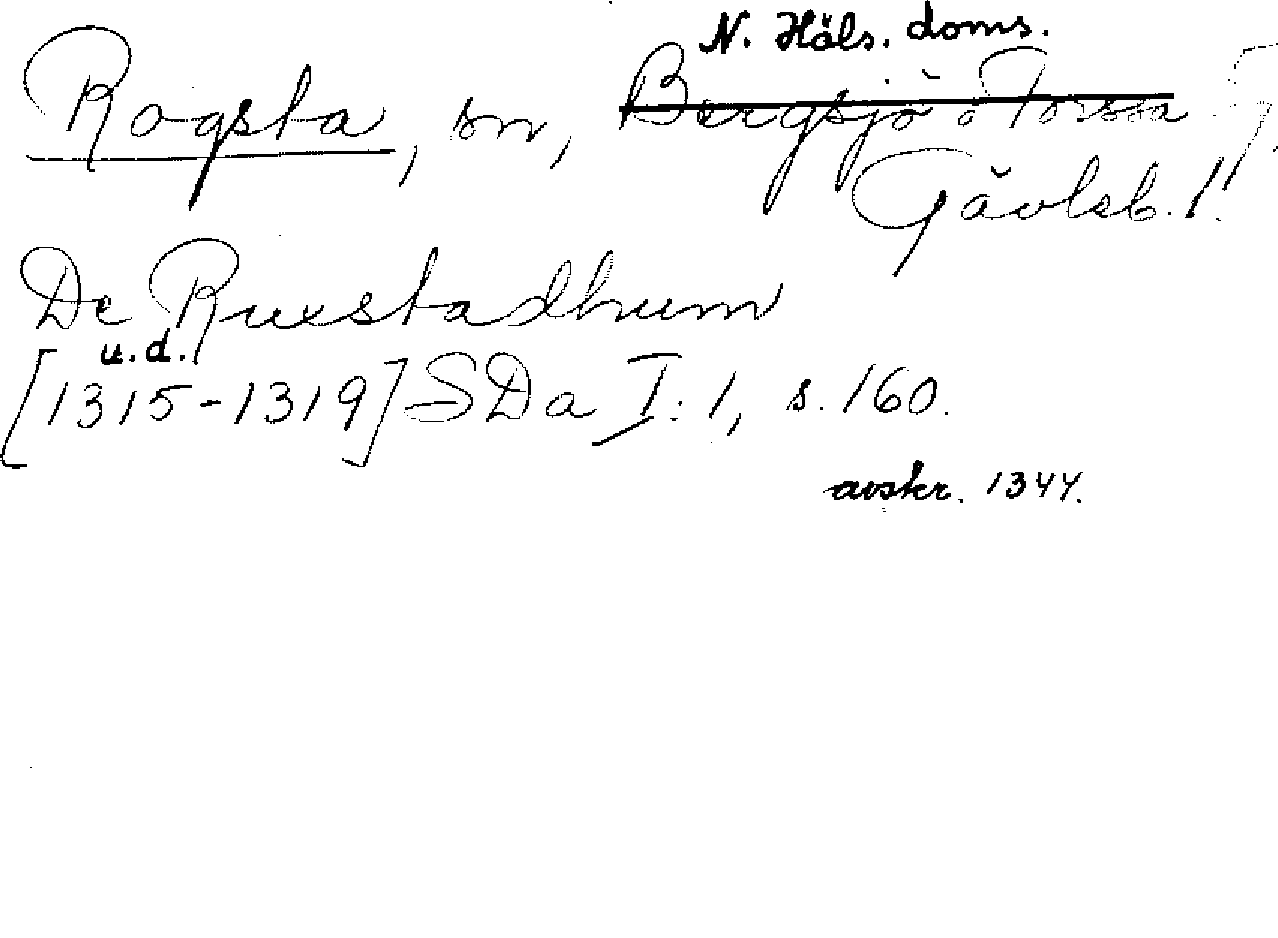 N. Häls. doms.
Rogsta, sn, Bergsjö o Forssa
Gävleb. l.
De Ruestadhum
u.d.
[1315-1319] SDa I: 1, s. 160.
avskr. 1344.